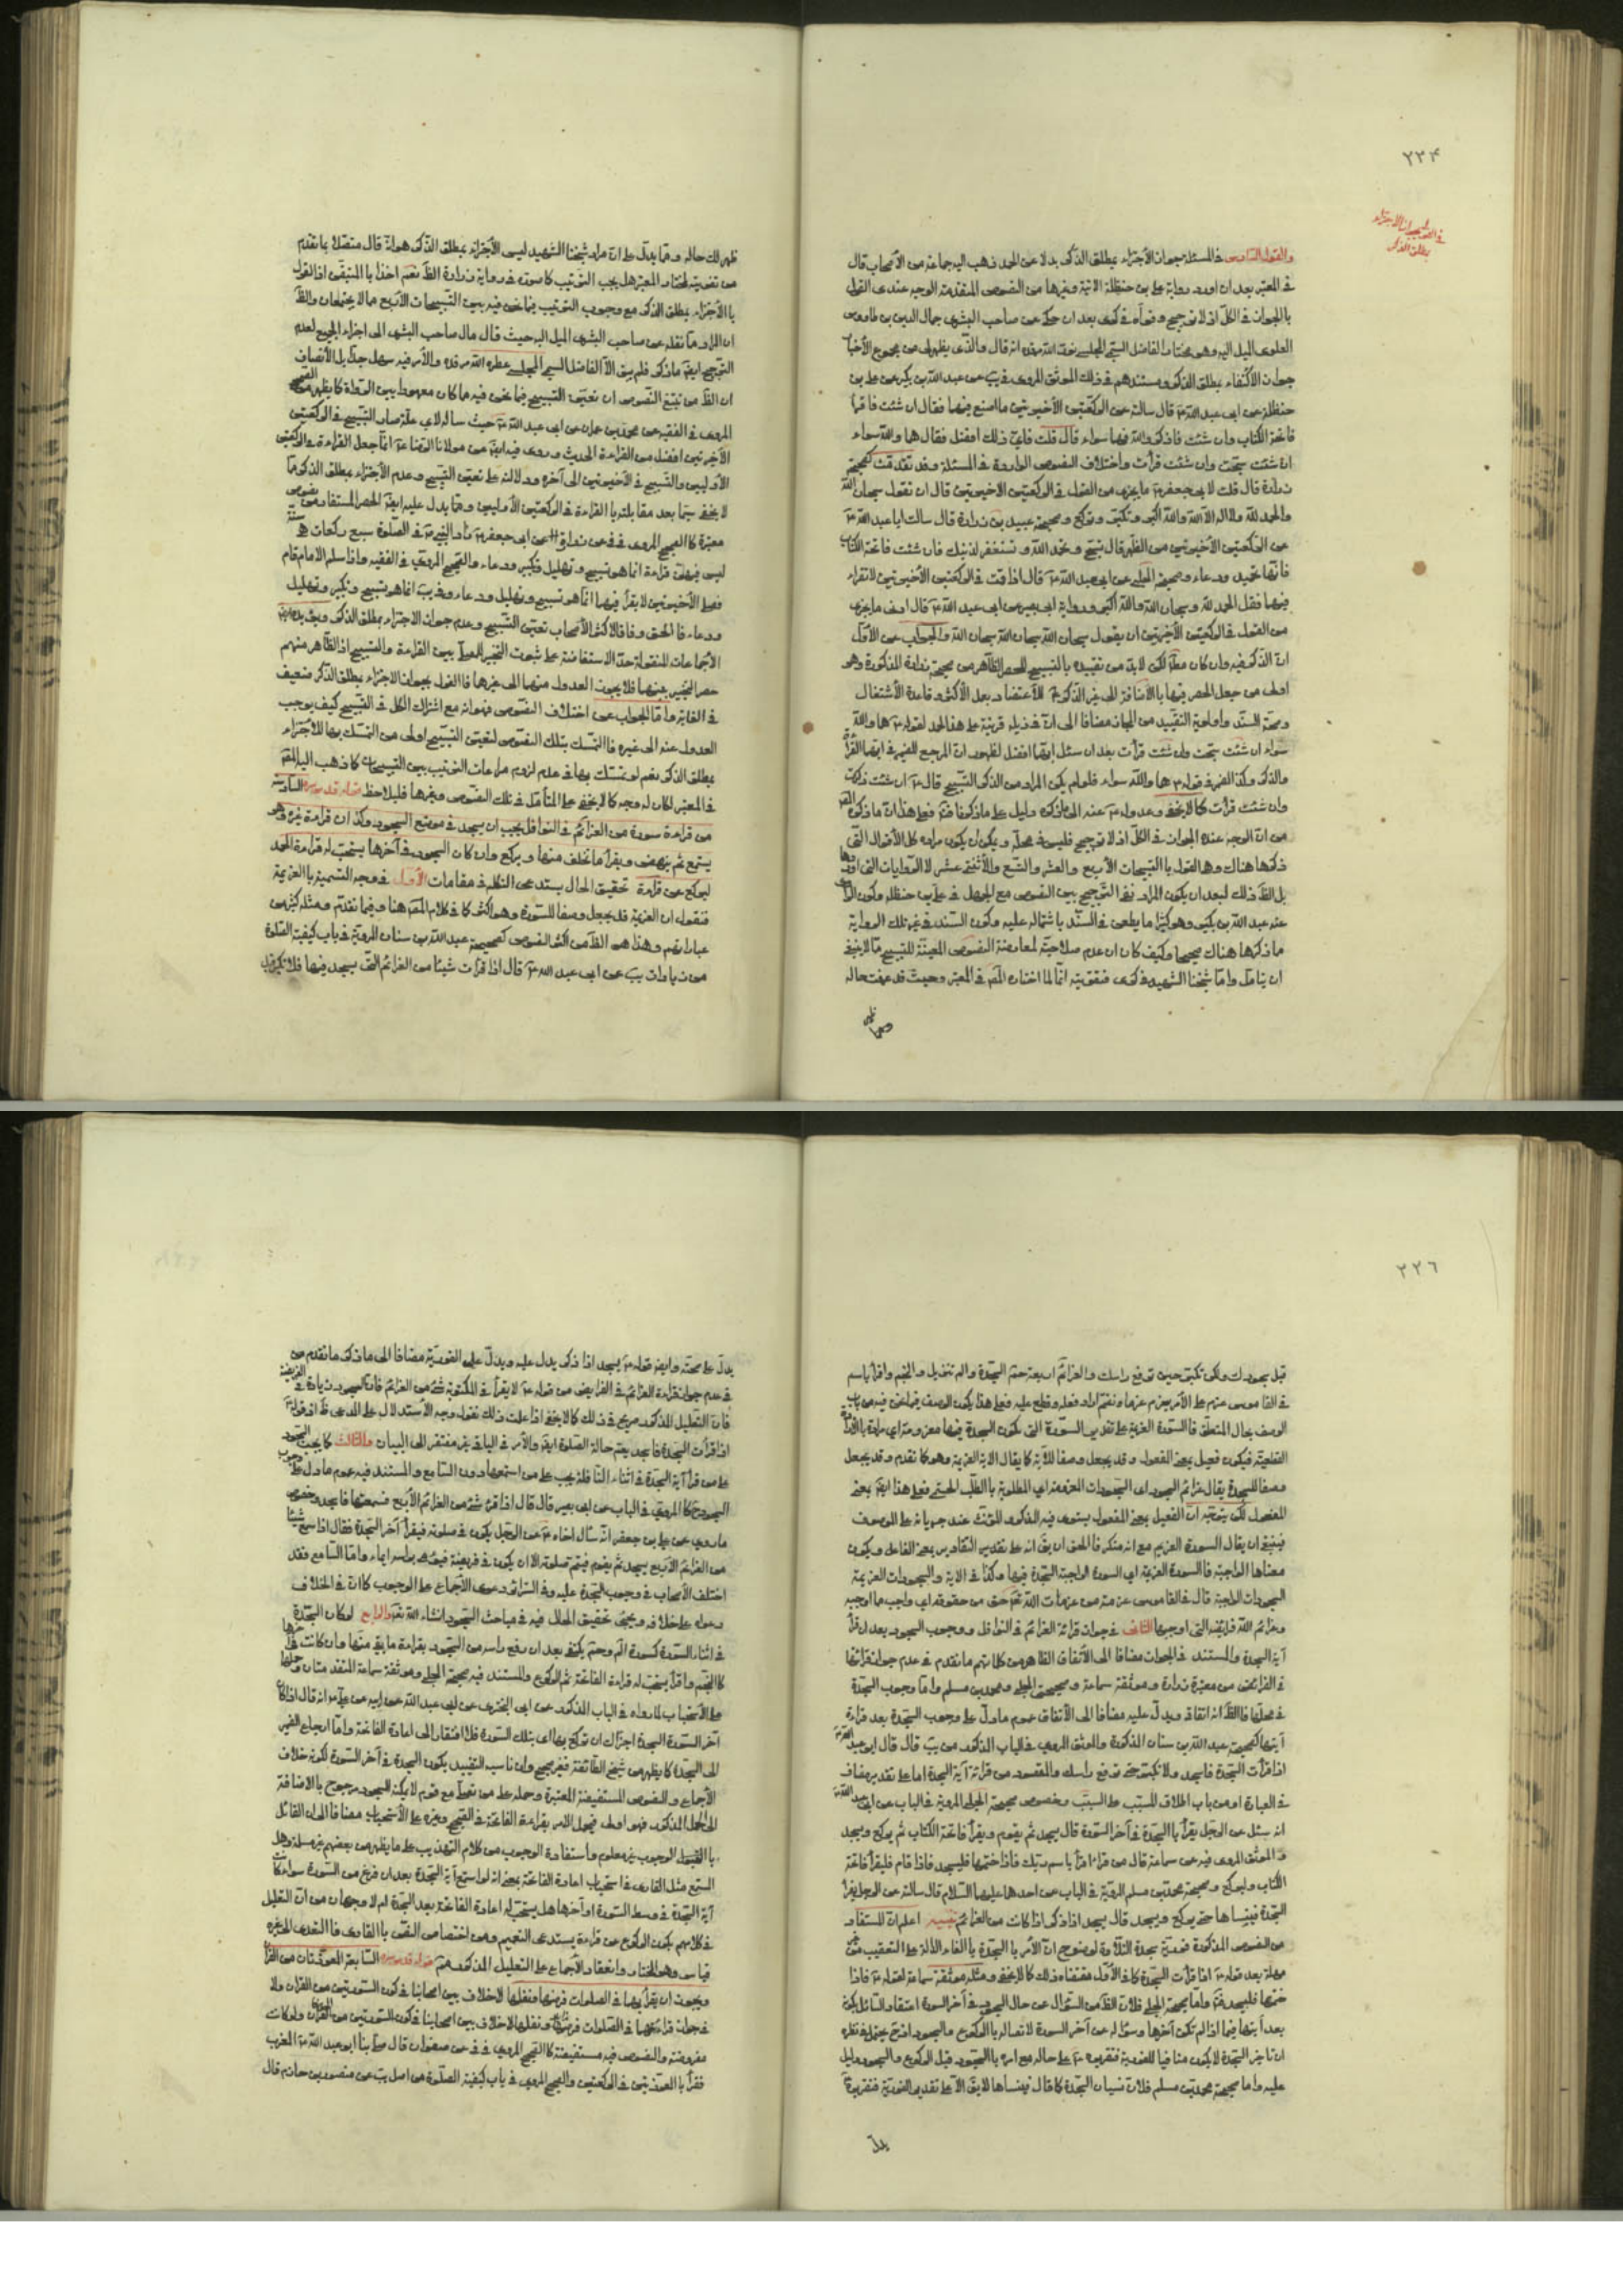 ٢٣۴
والقول السادس في المسئلة جواز الأجتزاء بمطلق الذكر بدلا عن الحمد ذهب اليه جماعة من الأصحاب قال
في المعتبر بعد ان اورد رواية علي بن حنظلة الاتية وغيرها من النصوص المتقدمة الوجه عندي القول
بالجواز في الكل اذ لا ترجيح وقواه في كرى بعد ان حكى عن صاحب البشرى جمال الدين بن طاووس
العلوى الميل اليه وهو مختار الفاضل السمي المجلسي نور الله مرقده انه قال والذي يظهر لى من مجموع الأخبار
جواز الاكتفاء بمطلق الذكر ومستندهم في ذلك الموثق المروى في يب عن عبد الله بن بكير عن علي بن
حنظلة عن ابى عبد الله ع قال سالته عن الركعتين الأخيرتين ما اصنع فيهما فقال ان شئت فاقرأ
فاتحة الكتاب وان شئت فاذكر الله فيهما سواء قال قلت فاي ذلك افضل فقال هما والله سواء
ان شئت سبحت وان شئت قرأت واختلاف النصوص الواردة في المسئلة وقد تقدمت كصحيحة
زرارة قال قلت لابى جعفر ع ما يجزى من القول في الركعتين الاخيرتين قال ان تقول سبحان الله
والحمد لله ولا اله الا الله والله اكبر وتكبر وتركع وصحيحة عبيد بن زرارة قال سالت ابا عبد الله ع
عن الركعتين الأخيرتين من الظهر قال تسبح وتحمد الله وتستغفر لذنبك فان شئت فاتحة الكتاب
فانها تحميد ودعاء وصحيحة الحلبي عن ابى عبد الله ع قال اذا قمت في الركعتين الأخيرتين لا تقراء
فيهما فقل الحمد لله وسبحان الله والله اكبر ورواية ابى بصير عن ابى عبد الله ع قال ادنى ما يجزى
من القول في الركعتين الأخيرتين ان يقول سبحان الله سبحان الله سبحان الله والجواب عن الأول
ان الذكر فيه وان كان مطلقا لكن لابد من تقييده بالتسبيح للحصر الظاهر من صحيحة زرارة المذكورة وهو
اولى من جعل الحصر فيها بالأضافة الى غير الذكر للأعتضاد بعمل الأكثر وقاعدة الأشتغال
وصحة السند واولوية التقييد من المجاز مضافا الى ان في ذيله قرينة على هذا الحمل لقوله ع هما والله
سواء ان شئت سبحت وان شئت قرأت بعد ان سئل ايهما افضل لظهور ان المرجع للضمير في ايهما القرأة
والذكر وكذا الضمير في قوله ع هما والله سواء فلو لم يكن المراد من الذكر التسبيح قال ع ان شئت ذكرت
وان شئت قرأت كما لا يخفى وعدوله ع عنه الى ما ذكره دليل على ما ذكرنا فتم فعلى هذا ان ما ذكره المص
من ان الوجه عنده الجواز في الكل اذ لا ترجيح فليس في محله ويمكن ان يكون مراده كل الأقوال التي
ذكرها هناك وهما القول بالتسبيحات الأربع والعشر والتسع والأثنى عشر لا الروايات التي اوردها
بل الظ ذلك لبعد ان يكون المراد نفي الترجيح بين النصوص مع الجهل في علي بن حنظلة وكون الراوي
عنه عبد الله بن بكير وهو كثيرا ما يطعن في السند باشتماله عليه وكون السند في غير تلك الرواية
ما ذكرها هناك صحيحا وكيف كان ان عدم صلاحيته لمعارضة النصوص المعينة للتسبيح مما لا ينبغى
ان يتامل واما شيخنا الشهيد في كرى فتقويته انما لما اختاره المص في المعتبر وحيث قد عرفت حاله
ظهر لك حاله ومما يدل على ان مراد شيخنا الشهيد ليس الأجتزاء بمطلق الذكر هو انه قال متصلا بما تقدم
من تقويته لمختار المعتبر هل يجب الترتيب كما صوره في رواية زرارة الظ نعم اخذا بالمتيقن اذ القول
بالأجتزاء بمطلق الذكر مع وجوب الترتيب فيما نحن فيه بين التسبيحات الأربع مما لا يجتمعان والظ
ان المراد مما نقله عن صاحب البشرى الميل اليه حيث قال مال صاحب البشرى الى اجزاء الجميع لعدم
الترجيح ايضا ما ذكر فلم يبق الا الفاضل السمي المجلسي عطر الله مرقده والأمر فيه سهل جدا بل الأنصاف
ان الظ من تتبع النصوص ان تعين التسبيح فيما نحن فيه مما كان معهودا بين الرواة كما يظهر من الصحيح
المروى في الفقيه عن محمد بن عمران عن ابى عبد الله ع حيث ساله لاي علة صار التسبيح في الركعتين
الأخيرتين افضل من القراءة الحديث وروى فيه ايضا عن مولانا الرضا ع انما جعل القراءة في الركعتين
الأوليين والتسبيح في الأخيرتين الى آخره ودلالته على تعين التسبيح وعدم الأجتزاء بمطلق الذكر مما
لا يخفى سيما بعد مقابلته بالقراءة في الركعتين الأوليين ومما يدل عليه ايضا الحصر المستفاد من نصوص
معتبرة كالصحيح المروى في في عن زرارة عن ابى جعفر ع فزاد النبي ص في الصلوة سبع ركعات هي سنة
ليس فيهن قراءة انما هو تسبيح وتهليل وتكبير ودعاء والصحيح المروي في الفقيه واذا سلم الامام قام
فصلى الأخيرتين لا يقرأ فيهما انما هو تسبيح وتهليل ودعاء وفي يب انما هو تسبيح وتكبير وتهليل
ودعاء فالحق وفاقا لاكثر الأصحاب تعين التسبيح وعدم جواز الاجتزاء بمطلق الذكر
الأجماعات المنقولة حد الاستفاضة على ثبوت التخيير بين القراءة والتسبيح اذ الظاهر منهم
حصر التخيير بينهما فلا يجوز العدول منهما الى غيرهما فالقول بجواز الاجتزاء بمطلق الذكر ضعيف
في الغاية واما الجواب عن اختلاف النصوص فهو انه مع اشتراك الكل في التسبيح كيف يوجب
العدول عنه الى غيره فالتمسك بتلك النصوص لتعين التسبيح اولى من التمسك بها للأجتزاء
بمطلق الذكر نعم لو تمسك بها في عدم لزوم مراعات الترتيب بين التسبيحات كما ذهب اليه المص
في المعتبر لكان له وجه كما لا يخفى على المتأمل في تلك النصوص وغيرها فليلاحظ قوله قدس سره السادسة
من قراءة سورة من العزائم في النوافل يجب ان يسجد في موضع السجود وكذا ان قراءة غيره وهو
يستمع ثم ينهض ويقرأ ما تخلف منها ويركع وان كان السجود في آخرها يستحب له قراءة الحمد
ليركع عن قراءة تحقيق الحال يستدعى التكلم في مقامات الأول في وجه التسمية بالعزيمة
فنقول ان العزيمة قد يجعل وصفا للسورة وهو اكثر كما في كلام المص هنا وفيما تقدم ومثله كثير من
عباراتهم وهذا هو الظ من اكثر النصوص كصحيحة عبد الله بن سنان المروية في باب كيفية الصلوة
من زيادات يب عن ابى عبد الله ع قال اذا قرأت شيئا من العزائم التي يسجد فيها فلا تكبر قبل
٢٢٦
قبل سجودك ولكن تكبر حين ترفع راسك والعزائم اربعة حم السجدة والم تنزيل والنجم واقرأ باسم
في القاموس عزم على الأمر يعزم عزما ويضم اراد فعله وقطع عليه فعلى هذا يكون الوصف فيما نحن فيه من باب
الوصف بحال المتعلق فالسورة العزيمة على تقدير السورة التي تكون السجدة فيها معزومة اي مرادة بالأرادة
القطعية فيكون فعيل بمعنى المفعول وقد يجعل وصفا للآية كما يقال الاية العزيمة وهو كما تقدم وقد يجعل
وصفا للسجدة يقال عزائم السجود اى السجودات المعزومة اي المطلوبة بالطلب الحتمي فعلى هذا ايضا بمعنى
المفعول لكن يتجه ان الفعيل بمعنى المفعول يستوى فيه المذكر والمؤنث عند جريانه على الموصوف
فينبغى ان يقال السورة العزيم مع انه منكر فالحق ان يق انه على تقدير التقادير بمعنى الفاعل ويكون
معناها الواجبة فالسورة العزيمة اي السورة الواجبة السجدة فيها وكذا في الاية والسجودات العزيمة
السجودات الواجبة قال في القاموس عزمة من عزمات الله تع حق من حقوقه اي واجب مما اوجبه
وعزائم الله فرائضه التي اوجبها الثاني في جواز قرائة العزائم في النوافل ووجوب السجود بعد ان قرأ
آية السجدة والمستند في الجواز مضافا الى الأتفاق الظاهر من كلماتهم ما تقدم في عدم جواز قرائتها
في الفرائض من معتبرة زرارة وموثقة سماعة وصحيحتي الحلبي ومحمد بن مسلم واما وجوب السجدة
في محلها فالظ انه اتفاق ويدل عليه مضافا الى الأتفاق عموم ما دل على وجوب السجدة بعد قراءة
آيتها كصحيحة عبد الله بن سنان المذكورة والموثق المروي في الباب المذكور من يب قال قال ابو عبد الله ع
اذا قرأت السجدة فاسجد ولا تكبر حتى ترفع راسك والمقصود من قرائة آية السجدة اما على تقدير مضاف
في العبارة او من باب اطلاق المسبب على السبب وخصوص صحيحة الحلبي المروية في الباب عن ابى عبد الله ع
انه سئل عن الرجل يقرأ بالسجدة في آخر السورة قال يسجد ثم يقوم ويقرأ فاتحة الكتاب ثم يركع ويسجد
والموثق المروى فيه عن سماعة قال من قراء اقرأ باسم ربك فاذا ختمها فليسجد فاذا قام فليقرأ فاتحة
الكتاب وليركع وصحيحة محمد بن مسلم المروية في الباب عن احدهما عليهما السلام قال سالته عن الرجل يقرأ
السجدة فينساها حتى يركع ويسجد قال يسجد اذا ذكر اذا كانت من العزائم تنبيه اعلم ان المستفاد
من النصوص المذكورة فورية سجدة التلاوة لوضوح ان الأمر بالسجدة بالفاء الدالة على التعقيب من غير
مهلة بعد قوله ع اذا قرأت السجدة كما في الأول مقتضاه ذلك كما لا يخفى ومثله موثقة سماعة لقوله ع فاذا
ختمها فليسجد واما صحيحة الحلبي فلان الظ من السؤال عن حال السجود في آخر السورة اعتقاد السائل يكون
بعد آيتها فيما اذا لم تكن آخرها وسؤاله عن آخر السورة لاتصاله بالركوع والسجود اذ يحتمل في نظره
ان تاخير السجدة لا يكون منافيا للفورية فتقريره ع على حاله مع امره بالسجود قبل الركوع والسجود دليل
عليه واما صحيحة محمد بن مسلم فلان نسيان السجدة كما قال فينساها لا يتفق الا على تقدير الفورية فتقريره
يدل
يدل على صحته وايضا قوله ع يسجد اذا ذكر يدل عليه ويدل على الفورية مضافا الى ما ذكر ما تقدم من
في عدم جواز قراءة العزائم في الفرايض من قوله ع لا يقرأ في المكتوبة شئ من العزائم فان السجود زيادة في الفريضة
فان التعليل المذكور صريح في ذلك كما لا يخفى اذا علمت ذلك نقول وجه الأستدلال على المدعى ظ اذ قوله
اذا قرأت السجدة فاسجد يعم حالة الصلوة ايضا والأمر في الباقي غير مفتقر الى البيان والثالث كما يجب السجود
على من قرأ آية السجدة في اثناء النافلة يجب على من استمعها دون السامع والمستند فيه عموم ما دل على وجوب
السجود ح كالمروي في الباب عن ابى بصير قال قال اذا قرئ شئ من العزائم الأربع فسمعتها فاسجد وخصوص
ما روي عن علي بن جعفر انه سئال اخاه ع عن الرجل يكون في صلوته فيقرأ آخر السجدة فقال اذا سمع شيئا
من العزائم الأربع يسجد ثم يقوم فيتم صلوته الا ان يكون في فريضة فيومى براسه ايماء واما السامع فقد
اختلف الأصحاب في وجوب السجدة عليه وفي السرائر دعوى الأجماع على الوجوب كما ان في الخلاف
دعواه على خلافه ويجئ تحقيق الحال فيه في مباحث السجود انشاء الله تع والرابع لو كان السجدة
في اثناء السورة كسورة الم وحم يكتفى بعد ان رفع راسه من السجود بقراءة ما بقي منها وان كانت في آخرها
كالنجم واقرأ يستحب له قراءة الفاتحة ثم الركوع والمستند فيه صحيحة الحلبي وموثقة سماعة المتقدمتان وحملها
على الأستحباب لما رواه في الباب المذكور عن ابى البخترى عن ابى عبد الله عن ابيه عن علي ع انه قال اذا كان
آخر السورة السجدة اجزاك ان تركع بها اى بتلك السورة فلا افتقار الى اعادة الفاتحة واما ارجاع الضمير
الى السجدة كما يظهر من شيخ الطائفة فغير صحيح وان ناسب التقييد بكون السجدة في آخر السورة لكونه خلاف
الأجماع والنصوص المستفيضة المعتبرة وحمله على من يصلى مع قوم لا يمكنه السجود مرجوح بالاضافة
الى الحمل المذكور فهو اولى فيحمل الأمر بقراءة الفاتحة في الصحيح وغيره على الأستحباب مضافا الى ان القائل
بالوجوب غير معلوم واستفادة الوجوب من كلام التهذيب على ما يظهر من بعضهم غير مسلم وهل
المستمع مثل القارى في استحباب اعادة الفاتحة بمعنى انه لو استمع آية السجدة بعد ان فرغ من السورة سواء كانت
آية السجدة في وسط السورة او آخرها هل يستحب له اعادة الفاتحة بعد السجدة ام لا وجهان من ان التعليل
في كلامهم بكون الركوع عن قراءة يستدعى التعميم ومن اختصاص النص بالقارى فالتعدى الى غيره
قياس وهو المختار وانعقاد الأجماع على التعليل المذكور مم قوله قدس سره السابعة المعوذتان من القرآن
ويجوز ان يقرأ بهما في الصلوات فرضها ونفلها لا خلاف بين اصحابنا في كون السورتين من القران ولا
في جواز قراءتهما في الصلوات فرضها ونفلها لا خلاف بين اصحابنا في كون السورتين من القران ولو كانت
مفروضة والنصوص فيه مستفيضة كالصحيح المروي في في عن صفوان قال صلى بنا ابو عبد الله ع المغرب
فقرأ بالمعوذتين في الركعتين والصحيح المروى في باب كيفية الصلوة من اصل يب عن منصور بن حازم قال